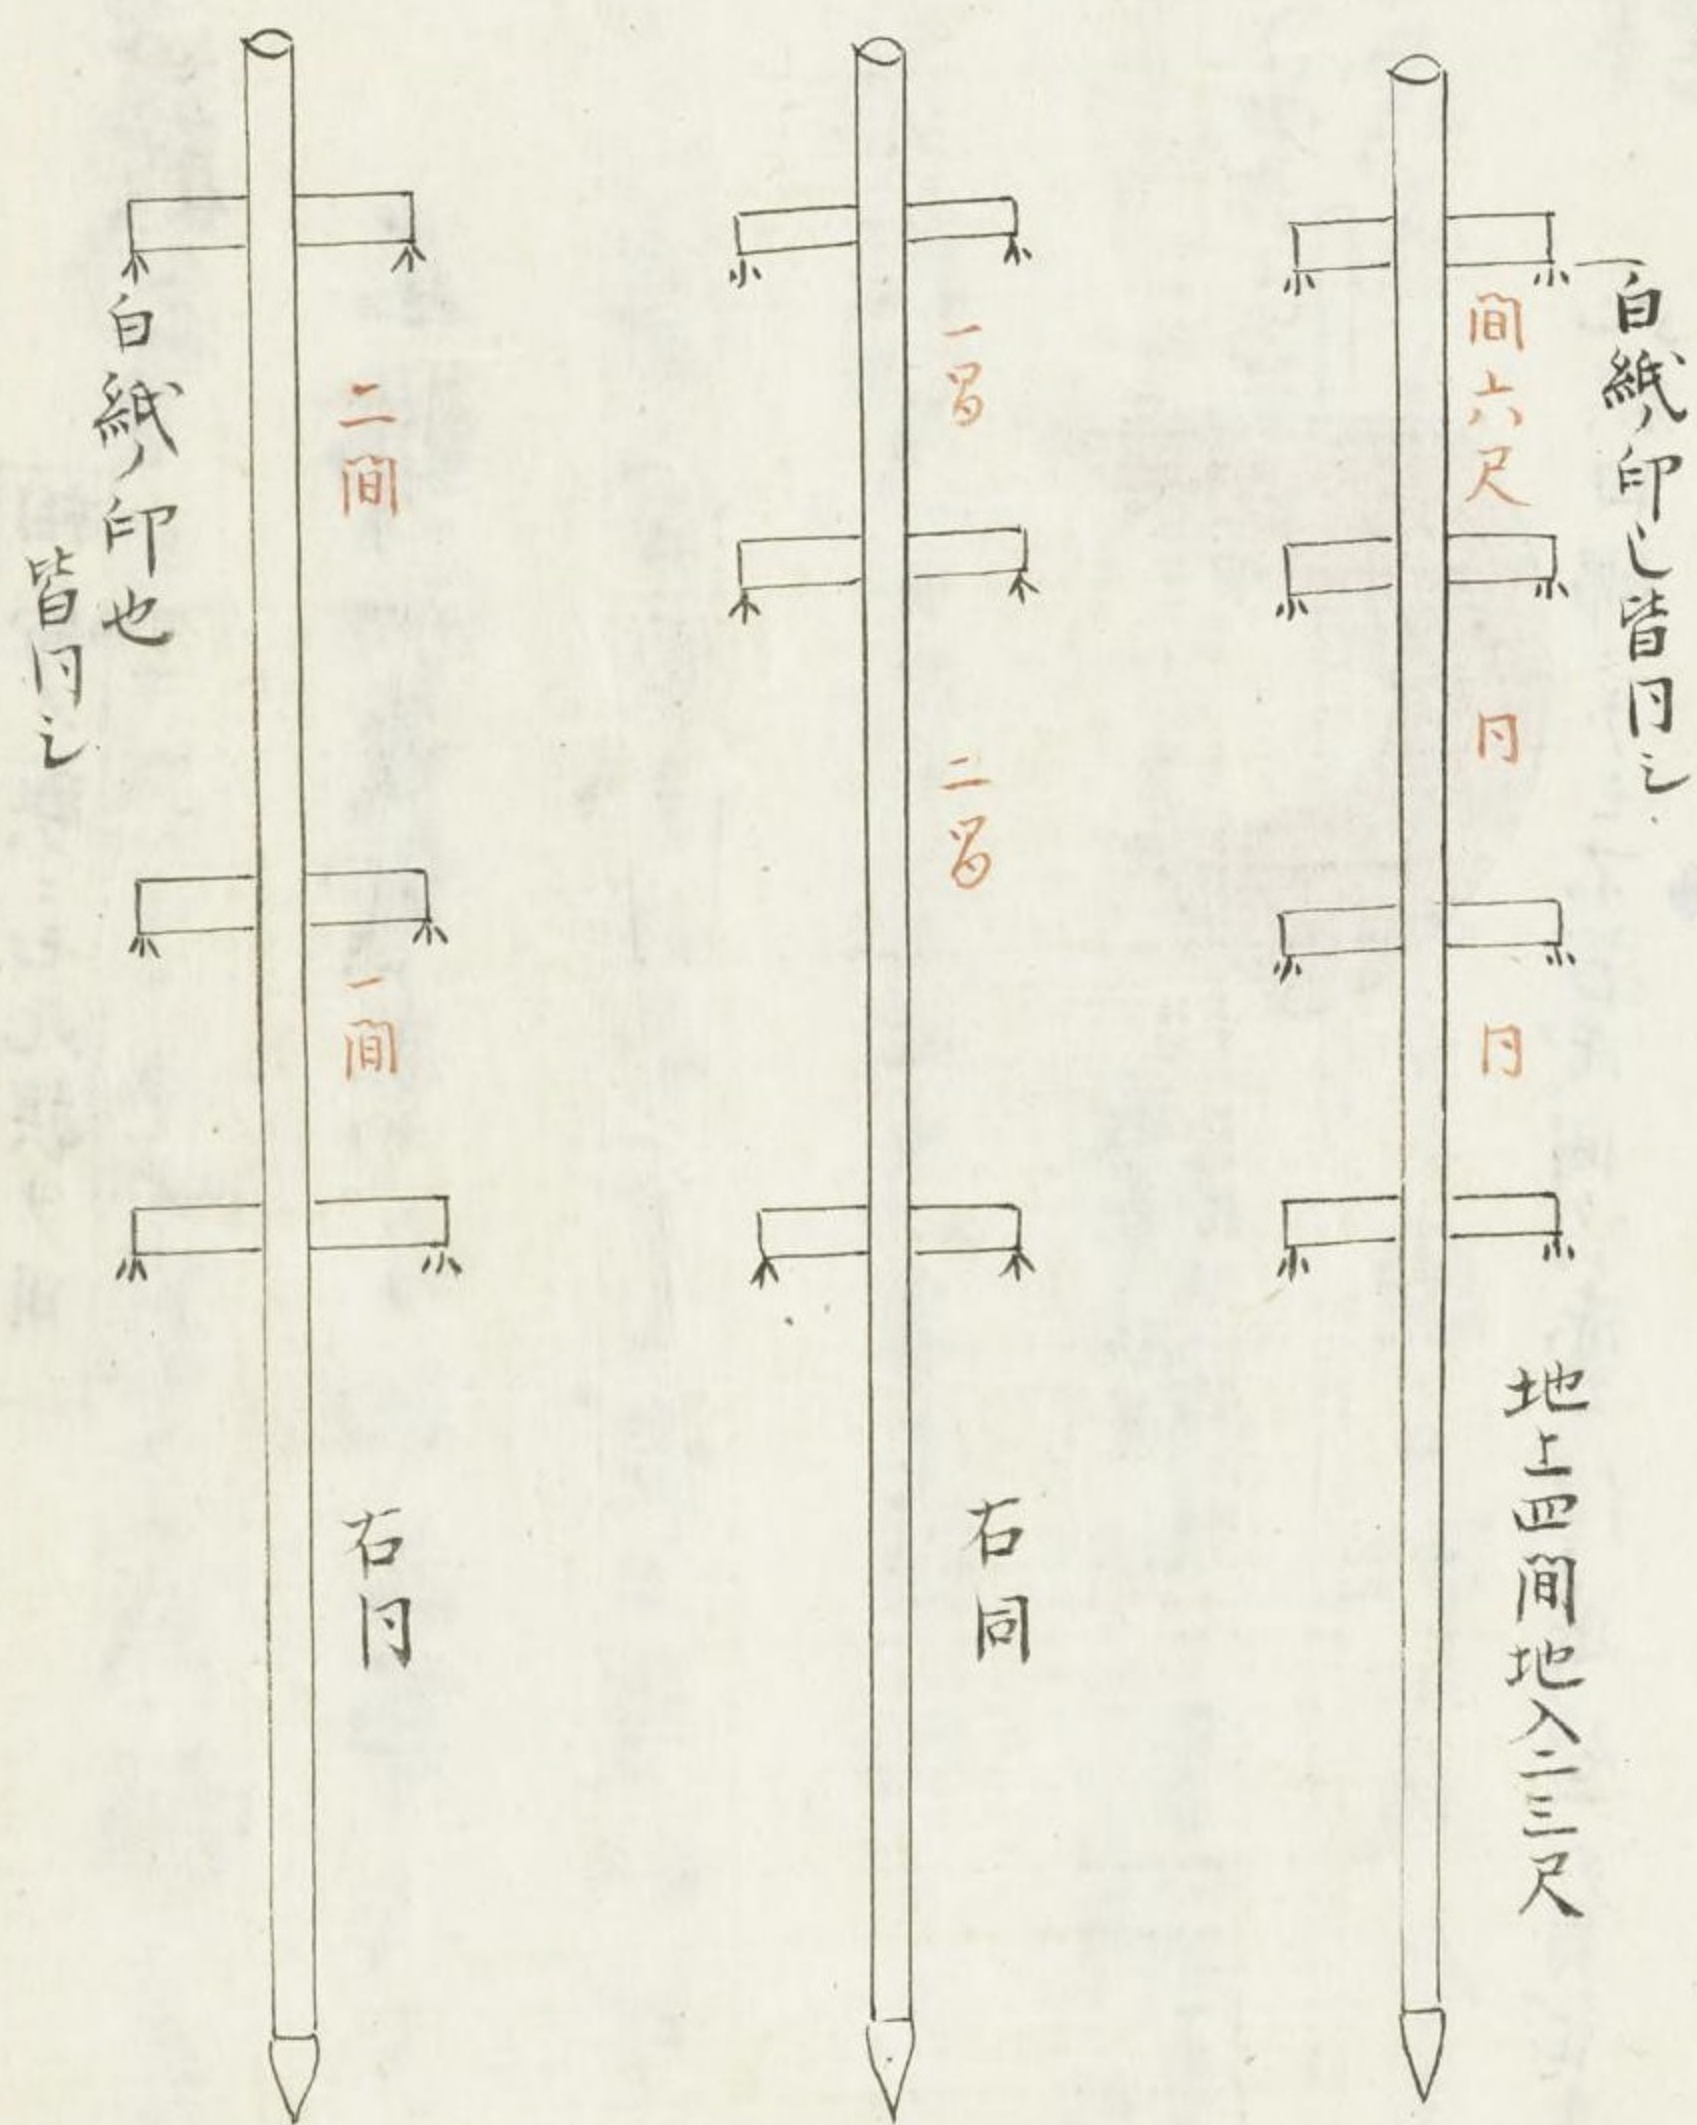 白紙ノ印也皆同之
間六尺
同
同
地上四間地入二三尺
一間
二間
右同
二間
一間
右同
白紙ノ印也
皆同之